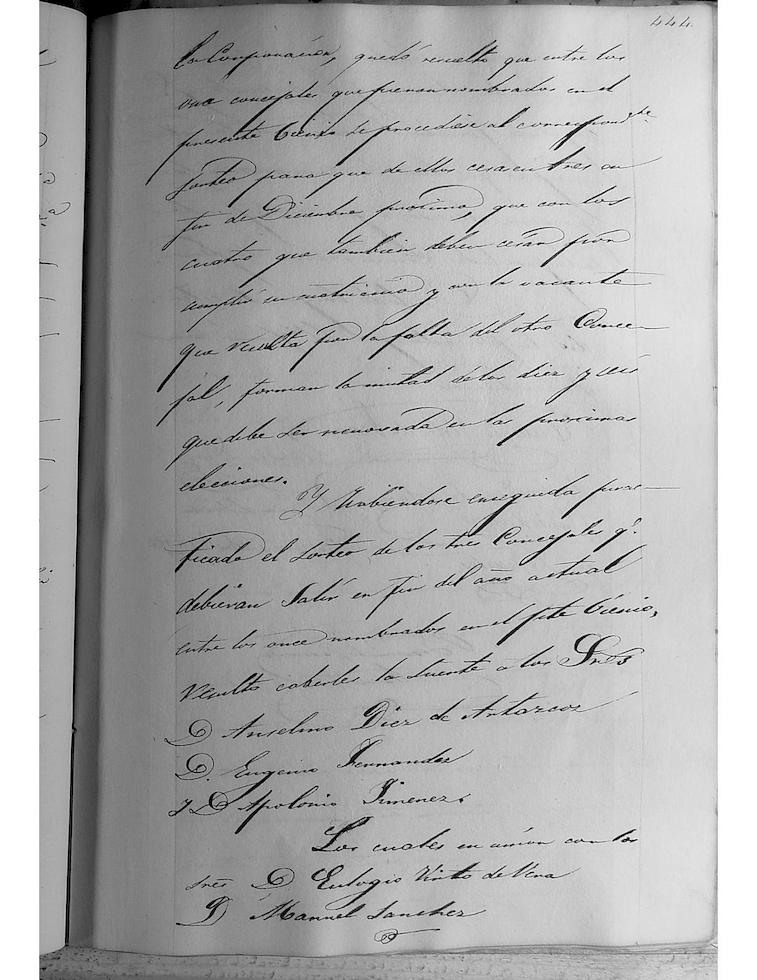 444.
la Corporación, quedó resuelto que entre los
once concejales que fueron nombrados en el
presente bienio se procediese al correspondte
sorteo para que de ellos cesasen tres en
fin de Diciembre proximo, que con los
cuatro que tambien deben cesar por
cumplir su cuatrienio y con la vacante
que resulta por la falta del otro Conce-
jal, forman la mitad de los diez y seis
que debe ser renovada en las proximas
elecciones.
Y habiendose enseguida prac-
ticado el sorteo de los tres Concejales q.
debieran salir en fin del año actual
entre los once nombrados en el pte bienio,
resultó caberles la suerte a los Sres
D Anselmo Diez de Antarcoz
D. Eugenio Fernandez
y D Apolonio Jimenez.
Los cuales en union con los
Sres D Eulogio de Vera
D Manuel Sanchez